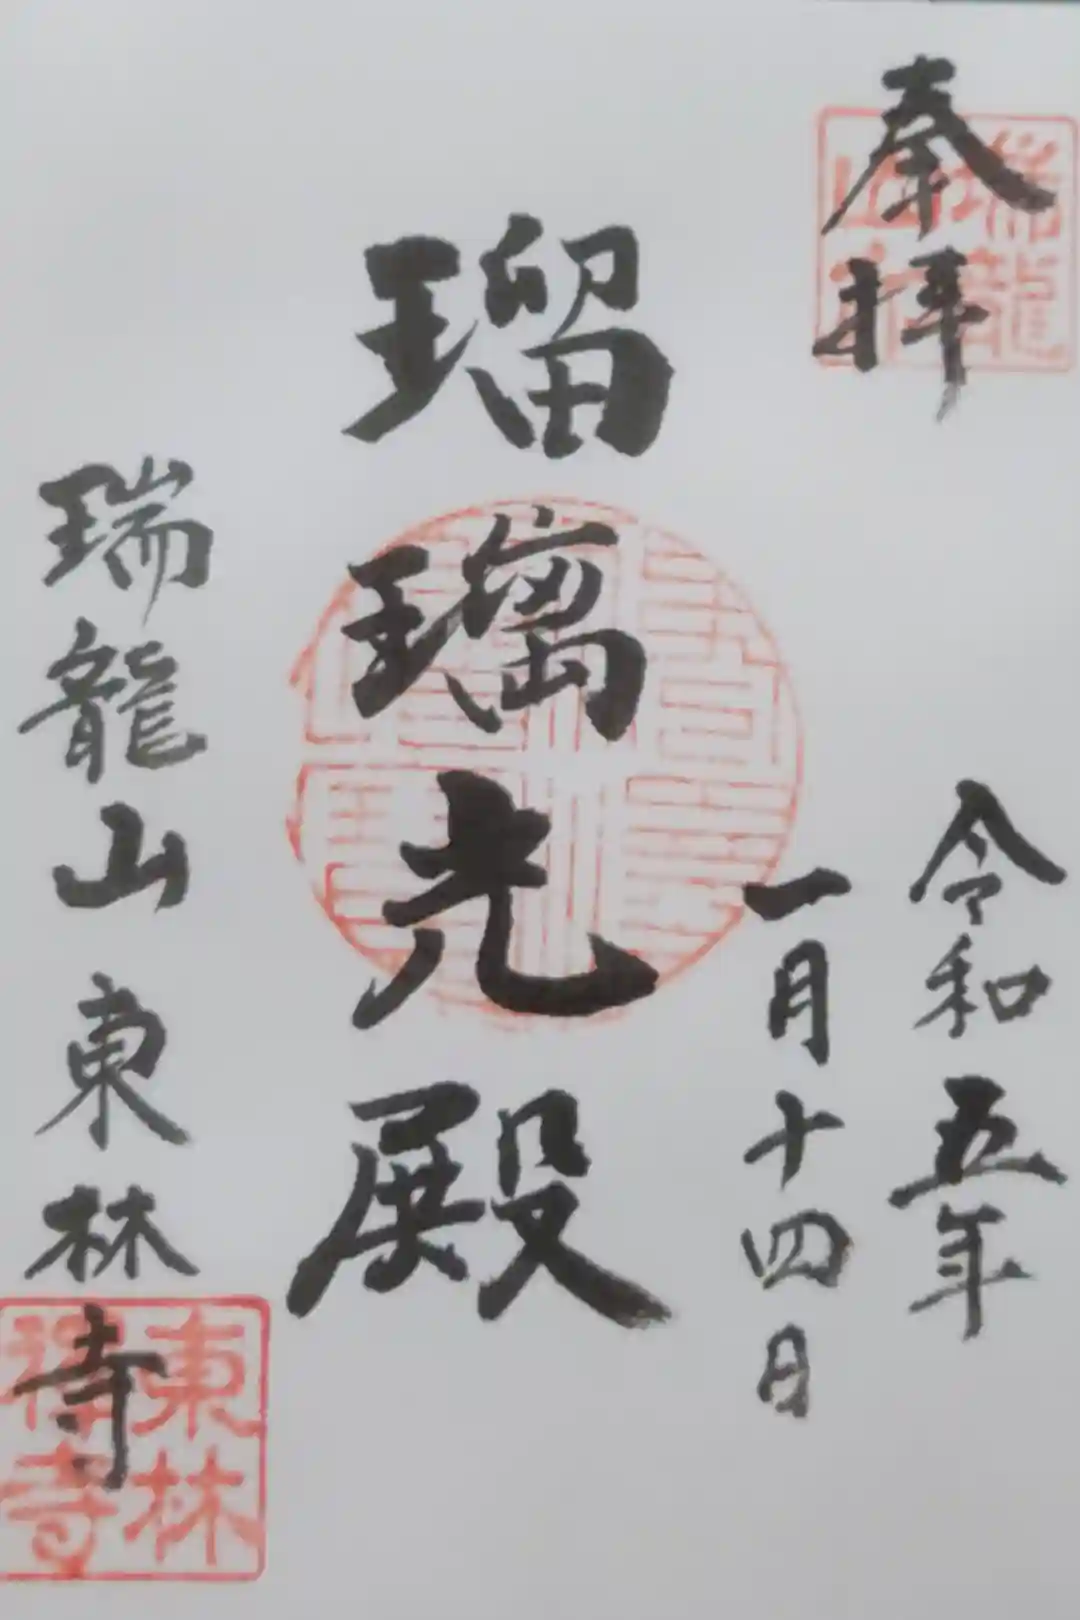 奉拝
令和五年
一月十四日
瑠璃光殿
瑞龍山東林寺
東林禅寺